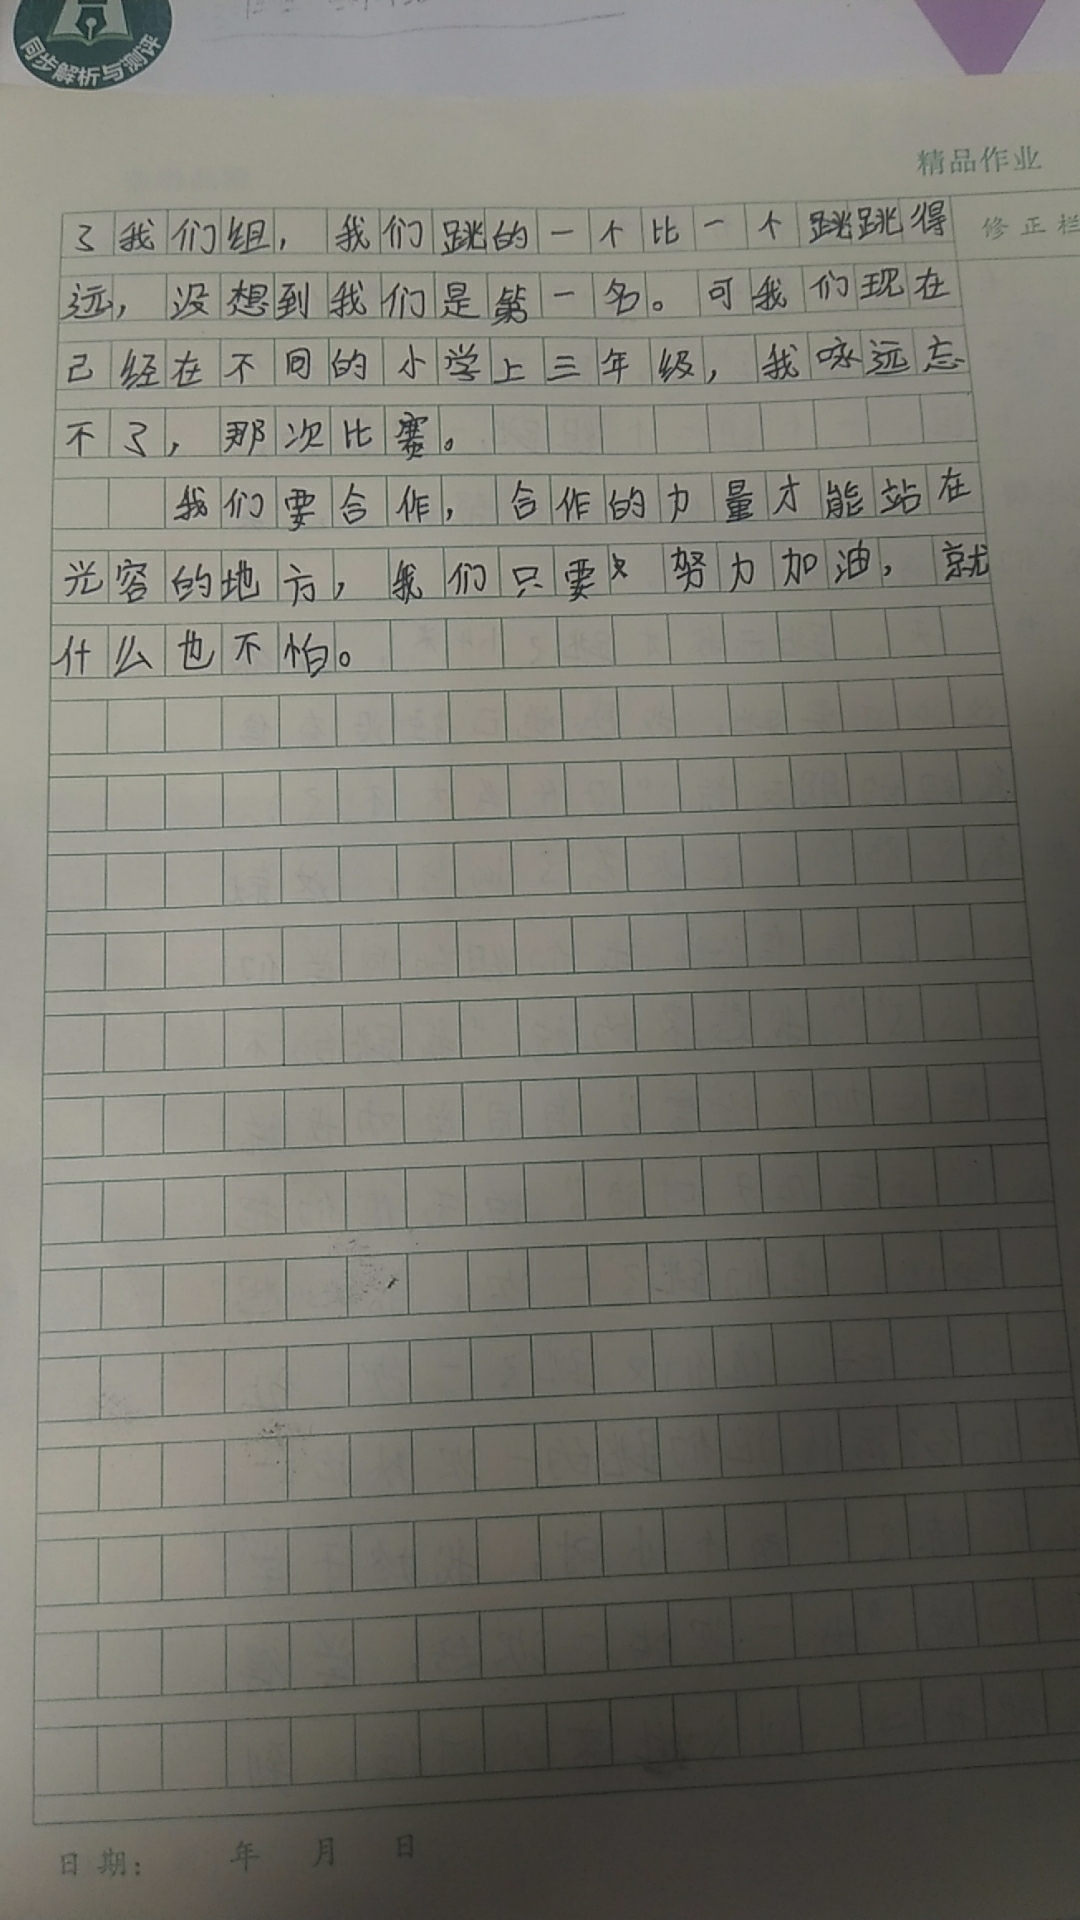 同步解析与测评
精品作业
修正栏
了我们组，我们跳的一个比一个跳跳得
远，没想到我们是第一名。可我们现在
己经在不同的小学上三年级，我咏远忘
不了，那次比赛。
我们要合作，合作的力量才能站在
光容的地方，我们只要 努力加油，就
什么也不怕。
日期： 年 月 日